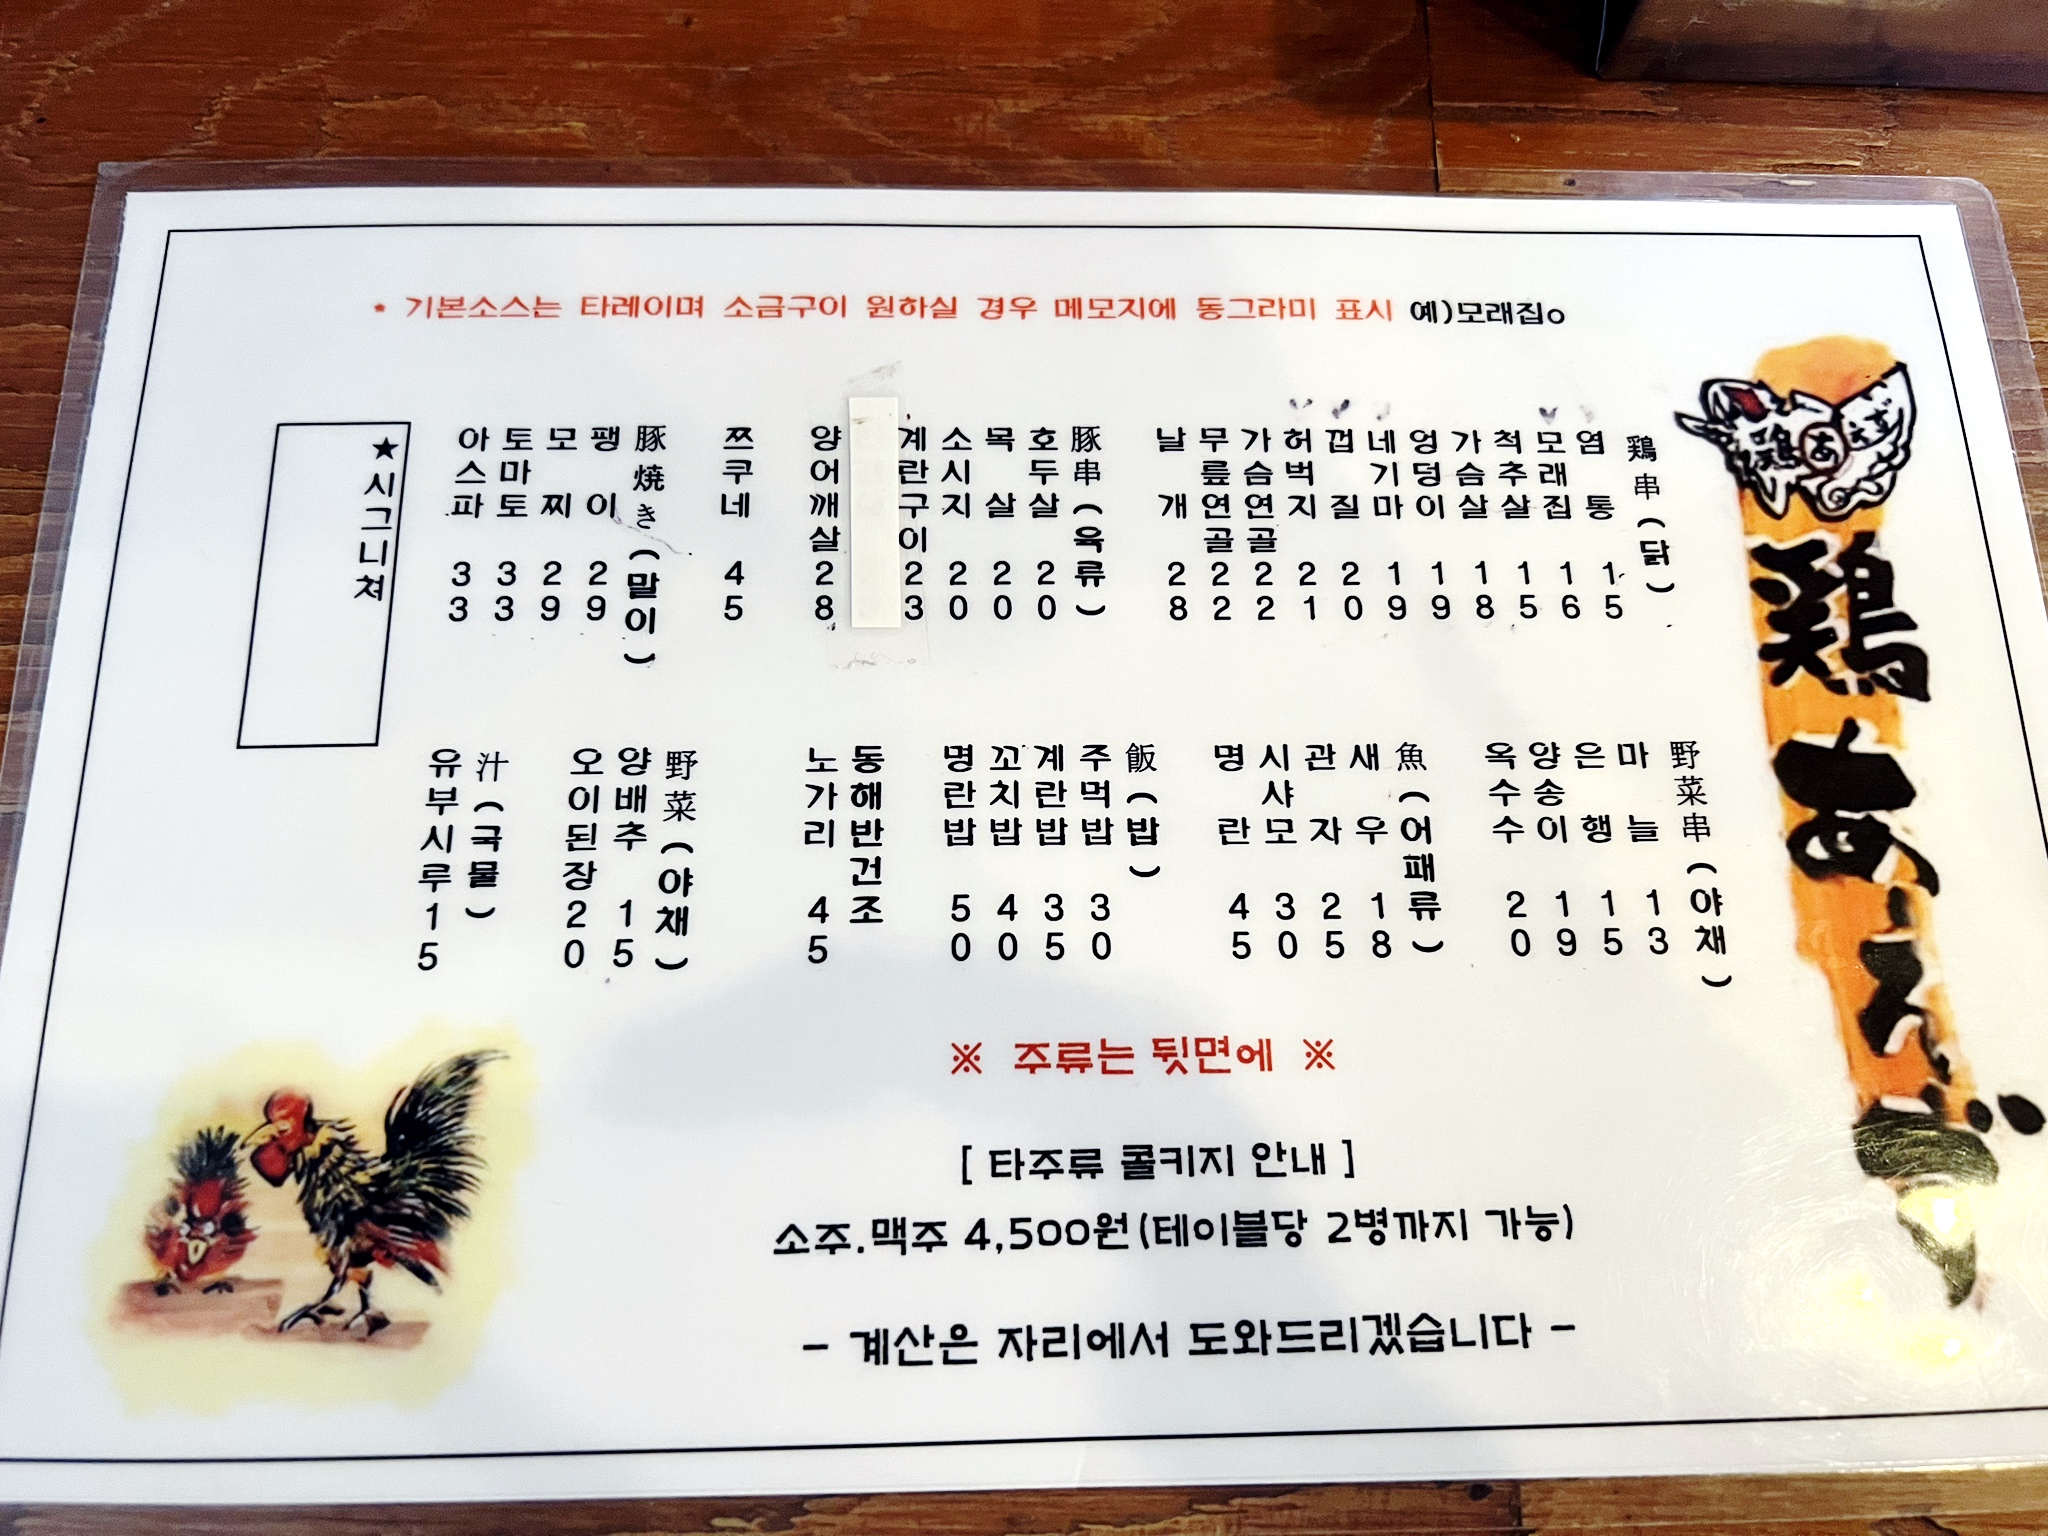 * 기본소스는 타레이며 소금구이 원하실 경우 메모지에 동그라미 표시 예)모래집o
鶏串(닭)
염통 15
모래집 16
척추살 15
가슴살 18
엉덩이 19
네기마 19
껍질 20
허벅지 21
가슴연골 22
무릎연골 22
날개 28
豚串(육류)
호두살 20
목살 20
소시지 20
계란구이 23
양어깨살 28
쯔쿠네 45
豚焼き(말이)
팽이 29
모찌 29
토마토 33
아스파 33
★시그니쳐
野菜串(야채)
마늘 13
은행 15
양송이 19
옥수수 20
魚(어패류)
새우 18
관자 25
시샤모 30
명란 45
飯(밥)
주먹밥 30
계란밥 35
꼬치밥 40
명란밥 50
동해반건조
노가리 45
野菜(야채)
양배추 15
오이된장 20
汁(국물)
유부시루 15
鶏あえず
※ 주류는 뒷면에 ※
[ 타주류 콜키지 안내 ]
소주.맥주 4,500원(테이블당 2병까지 가능)
- 계산은 자리에서 도와드리겠습니다 -